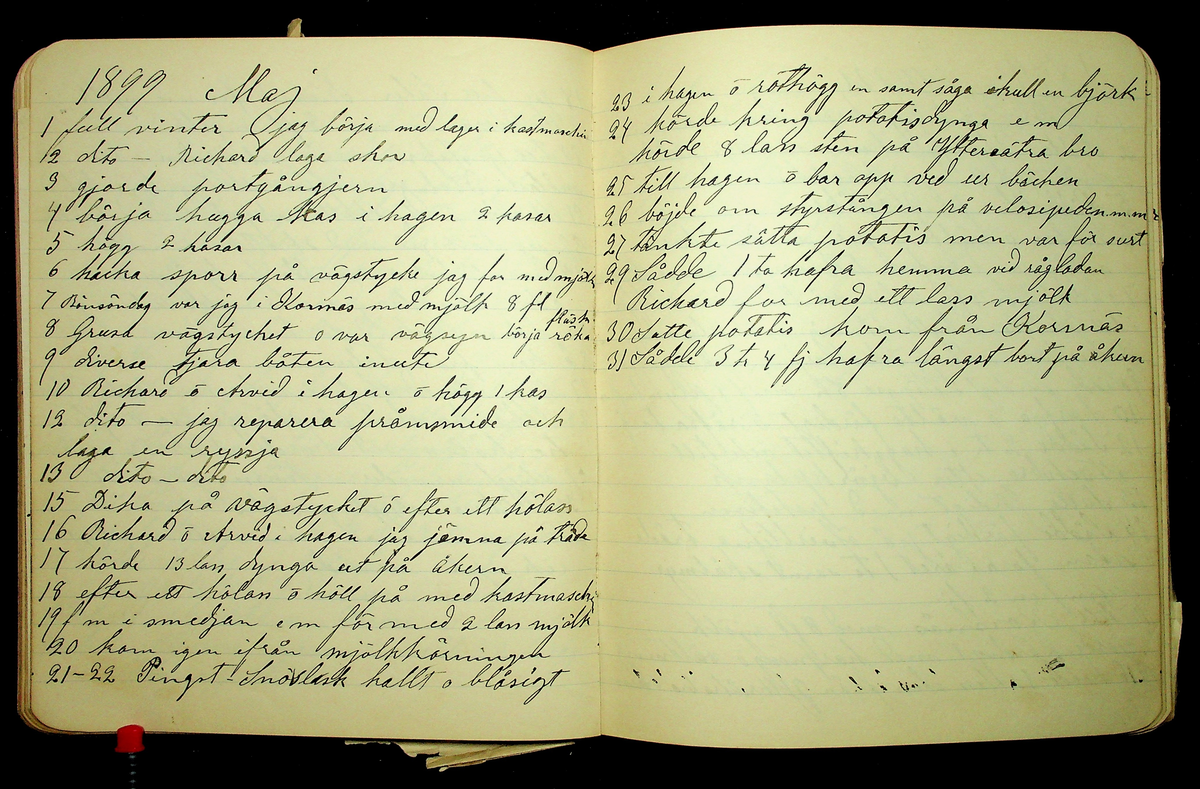 1899 Maj
1 full vinter jag börja med lager i kastmaschin
12 dito – Richard laga skor
3 gjorde portgångjern
4 börja hugga kas i hagen 2 kasar
5 högg 2 kasar
6 hacka sporr på vägstycke jag for med mjölk
7 Bönsöndag var jag i Kornäs med mjölk 8 fl
8 Grusa vägstycket o var vägsyn börja röka fläsk
9 diverse tjära båten inute
10 Richard ō Arvid i hagen ō högg 1 kas
12 dito – jag reparera pråmsmide och
laga en ryssja
13 dito – dito
15 Dika på vägstycket ō efter ett hölass
16 Richard ō Arvid i hagen jag jämna på träda
17 körde 13 lass dynga ut på åkern
18 efter ett hölass ō höll på med kastmaschi
19 f m i smedjan e m för med 2 lass mjölk
20 kom igen ifrån mjölkkörningen
21–22 Pingst – Snöslask kallt o blåsigt
23 i hagen ō röthögg en samt såga ikull en björk
24 körde kring potatisdynga e m
körde 8 lass sten på Yttersätra bro
25 till hagen ō bar opp ved ur bäcken
26 böjde om styrstången på velosipeden m.m
27 tänkte sätta potatis men var för surt
29 Sådde 1 ta hafra hemma vid rågladan
Richard for med ett lass mjölk
30 Satte potatis kom från Kornäs
31 Sådde 3 t 4 fj hafra längst bort på åkern